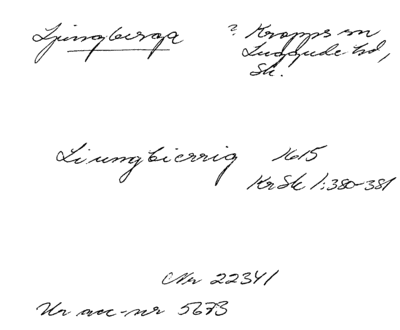 Ljungberga ? Kropps sn
Luggude hd,
Sk.
Liungbierrig 1615
KrSk 1:380-381
Nr 22341
Ur acc-nr 5673